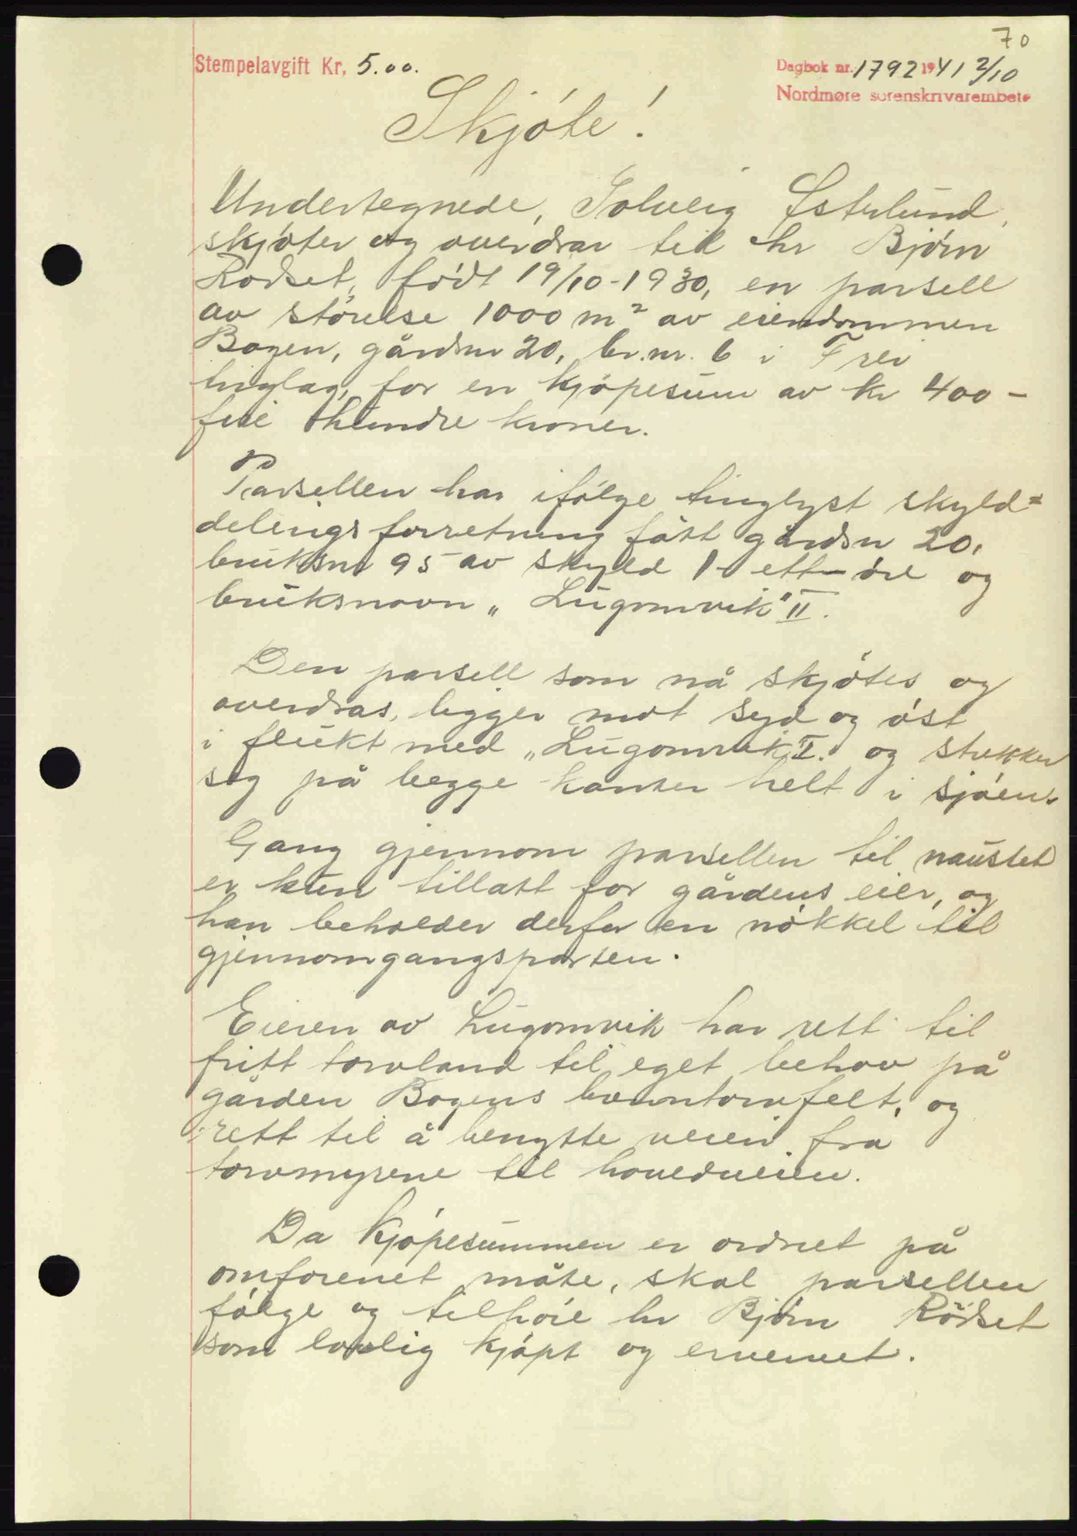 70
Stempelavgift Kr. 5.00.
Dagbok nr. 1792 1941 2/10
Nordmøre sorenskrivarembete
Skjóte!
Undertegnede, Solveig Østerlund,
skjóter og overdrar til hr Bjørn
Rodset, født 19/10-1930, en parsell
av stórelse 1000 m² av eiendommen
Bogen, gårdsnr 20, br.nr. 6 i Frei
tinglag, for en kjópesum av kr 400 -
fire hundre kroner.
Parsellen har ifólge tinglyst skyld=
delingsforretning fått gårdsnr 20,
bruksnr 95 av skyld 1- ett- óre og
bruksnavn „Lugomvik" II.
Den parsell som nå skjótes og
overdras, ligger mot syd og óst
i flukt med „Lugomvik" I. og strekker
sig på begge kanter helt i sjóen.
Gang gjennom parsellen til naustet
er kun tillatt for gårdens eier, og
han beholder derfor en nókkel til
gjennomgangsporten.
Eieren av Lugomvik har rett til
fritt torvland til eget behov på
gården Bogens brenntorvfelt, og
rett til å benytte veien fra
torvmyrene til hovedveien.
Da kjópesummen er ordnet på
omforenet måte, skal parsellen
fólge og tilhóre hr Bjórn Rødset
som lovlig kjópt og ervervet.